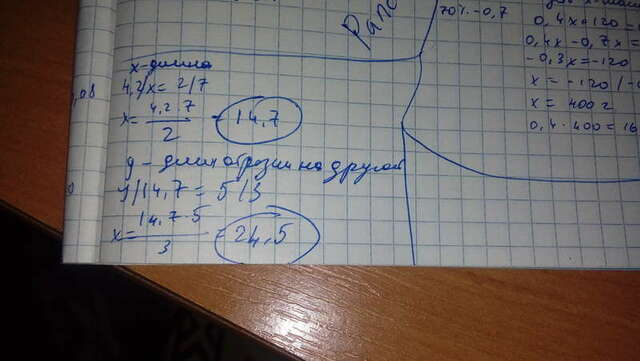 x-длина
4,2/x = 2/7
x = 4,2·7
2
14,7
у - длин отрезии на другой
у/14,7 = 5/3
x = 14,7·5
3
= 24,5
70% - 0,7
0,4x + 120 =
0,4x - 0,7x =
-0,3x = -120
x = -120/-0
x = 400г
0,4·400 = 16